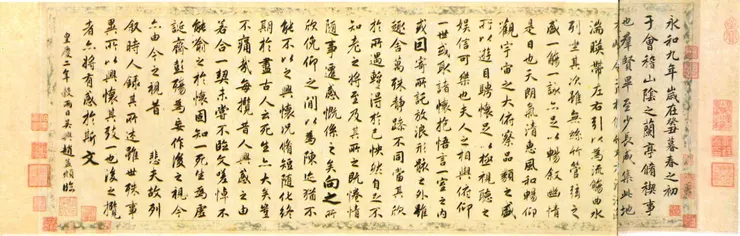 永和九年歲在癸丑暮春之初
于會稽山陰之蘭亭脩禊事
也羣賢畢至少長咸集此地
湍暎帶左右引以為流觴曲水
列坐其次雖無絲竹管弦之
盛一觴一詠亦足以暢敘幽情
是日也天朗氣清惠風和暢仰
觀宇宙之大俯察品類之盛
所以遊目騁懷足以極視聽之
娛信可樂也夫人之相與俯仰
一世或取諸懷抱悟言一室之內
或因寄所託放浪形骸之外雖
趣舍萬殊靜躁不同當其欣
於所遇暫得於己怏然自足不
知老之將至及其所之既惓情
隨事遷感慨係之矣向之所
欣俛仰之間以為陳迹猶不
能不以之興懷況脩短隨化終
期於盡古人云死生亦大矣豈
不痛哉每攬昔人興感之由
若合一契未嘗不臨文嗟悼不
能喻之於懷固知一死生為虛
誕齊彭殤為妄作後之視今
亦由今之視昔 悲夫故列
敘時人錄其所述雖世殊事
異所以興懷其致一也後之攬
者亦將有感於斯文
皇慶二年穀雨日吳興趙孟頫臨